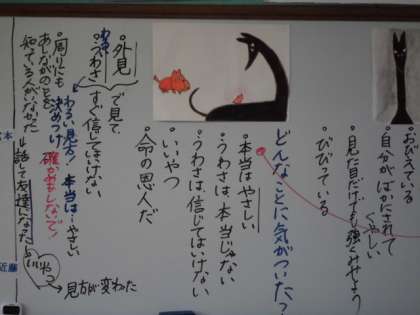 おびえている
自分がばかにされて
くやしい
見ためだけでも強くみせよう
びびっている
どんなことに気がついた?
本当はやさしい
うわさは本当じゃない
うわさは信じてはいけない
いいやつ
命の恩人だ
外見で見て
うわさ
すぐ信じてはいけない
わるい見た方 本当は…やさしい
周りにも決めつけ
確かめもしないで!
あしながのことを
知っている人がいなかった
↓話して友達になった
いいやつ
→見方が変わった
近藤